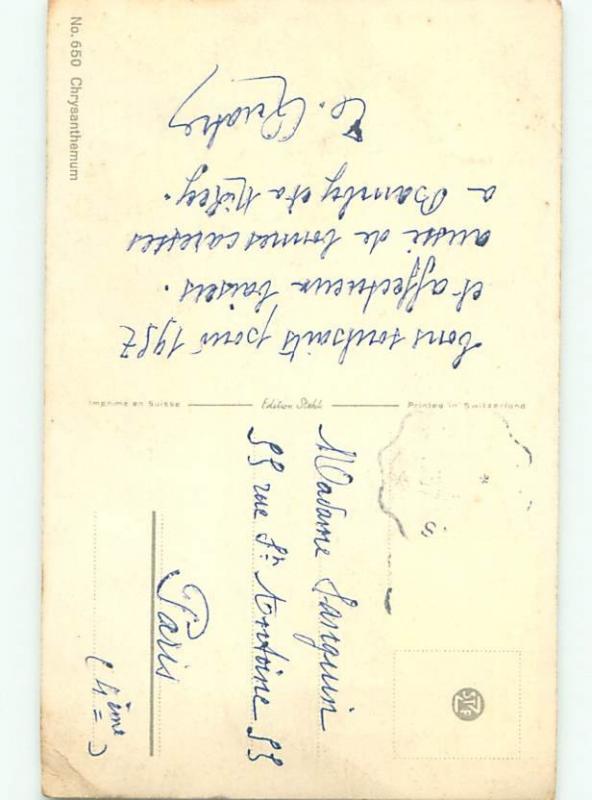 No. 650 Chrysanthemum
bons souhaits pour 1957
et affectueux baisers.
aussi de bonnes caresses
a Bamby et a Mickey.
Imprimé en Suisse
Edition Stehli
Printed in Switzerland
Madame Sanguin
93 rue St Antoine 93
Paris
(4ème)